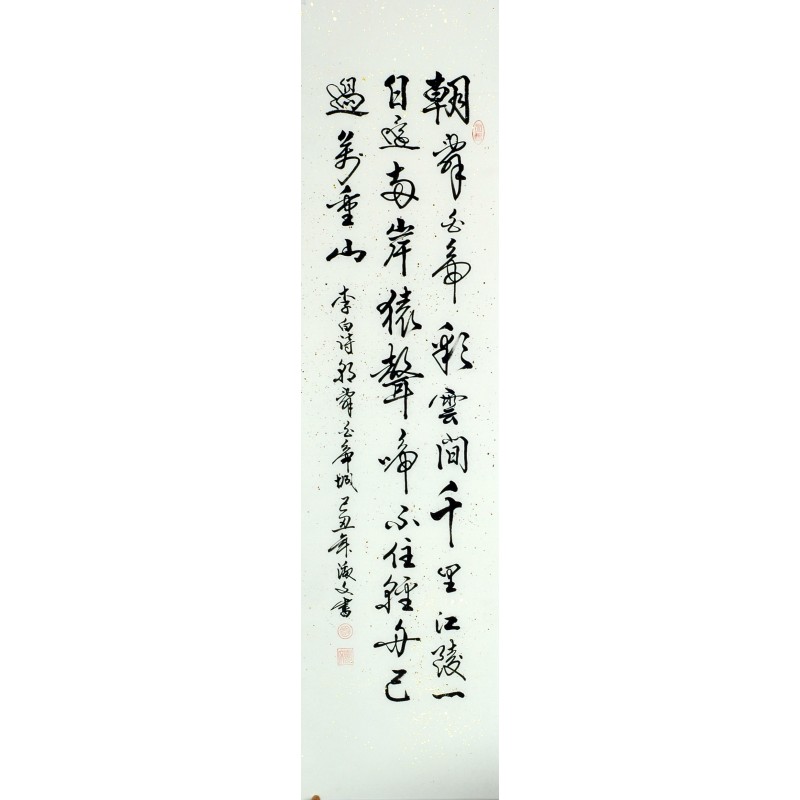 朝辭白帝彩雲間千里江陵一
日還兩岸猿聲啼不住輕舟已
過萬重山
李白诗朝辭白帝城己丑年文書